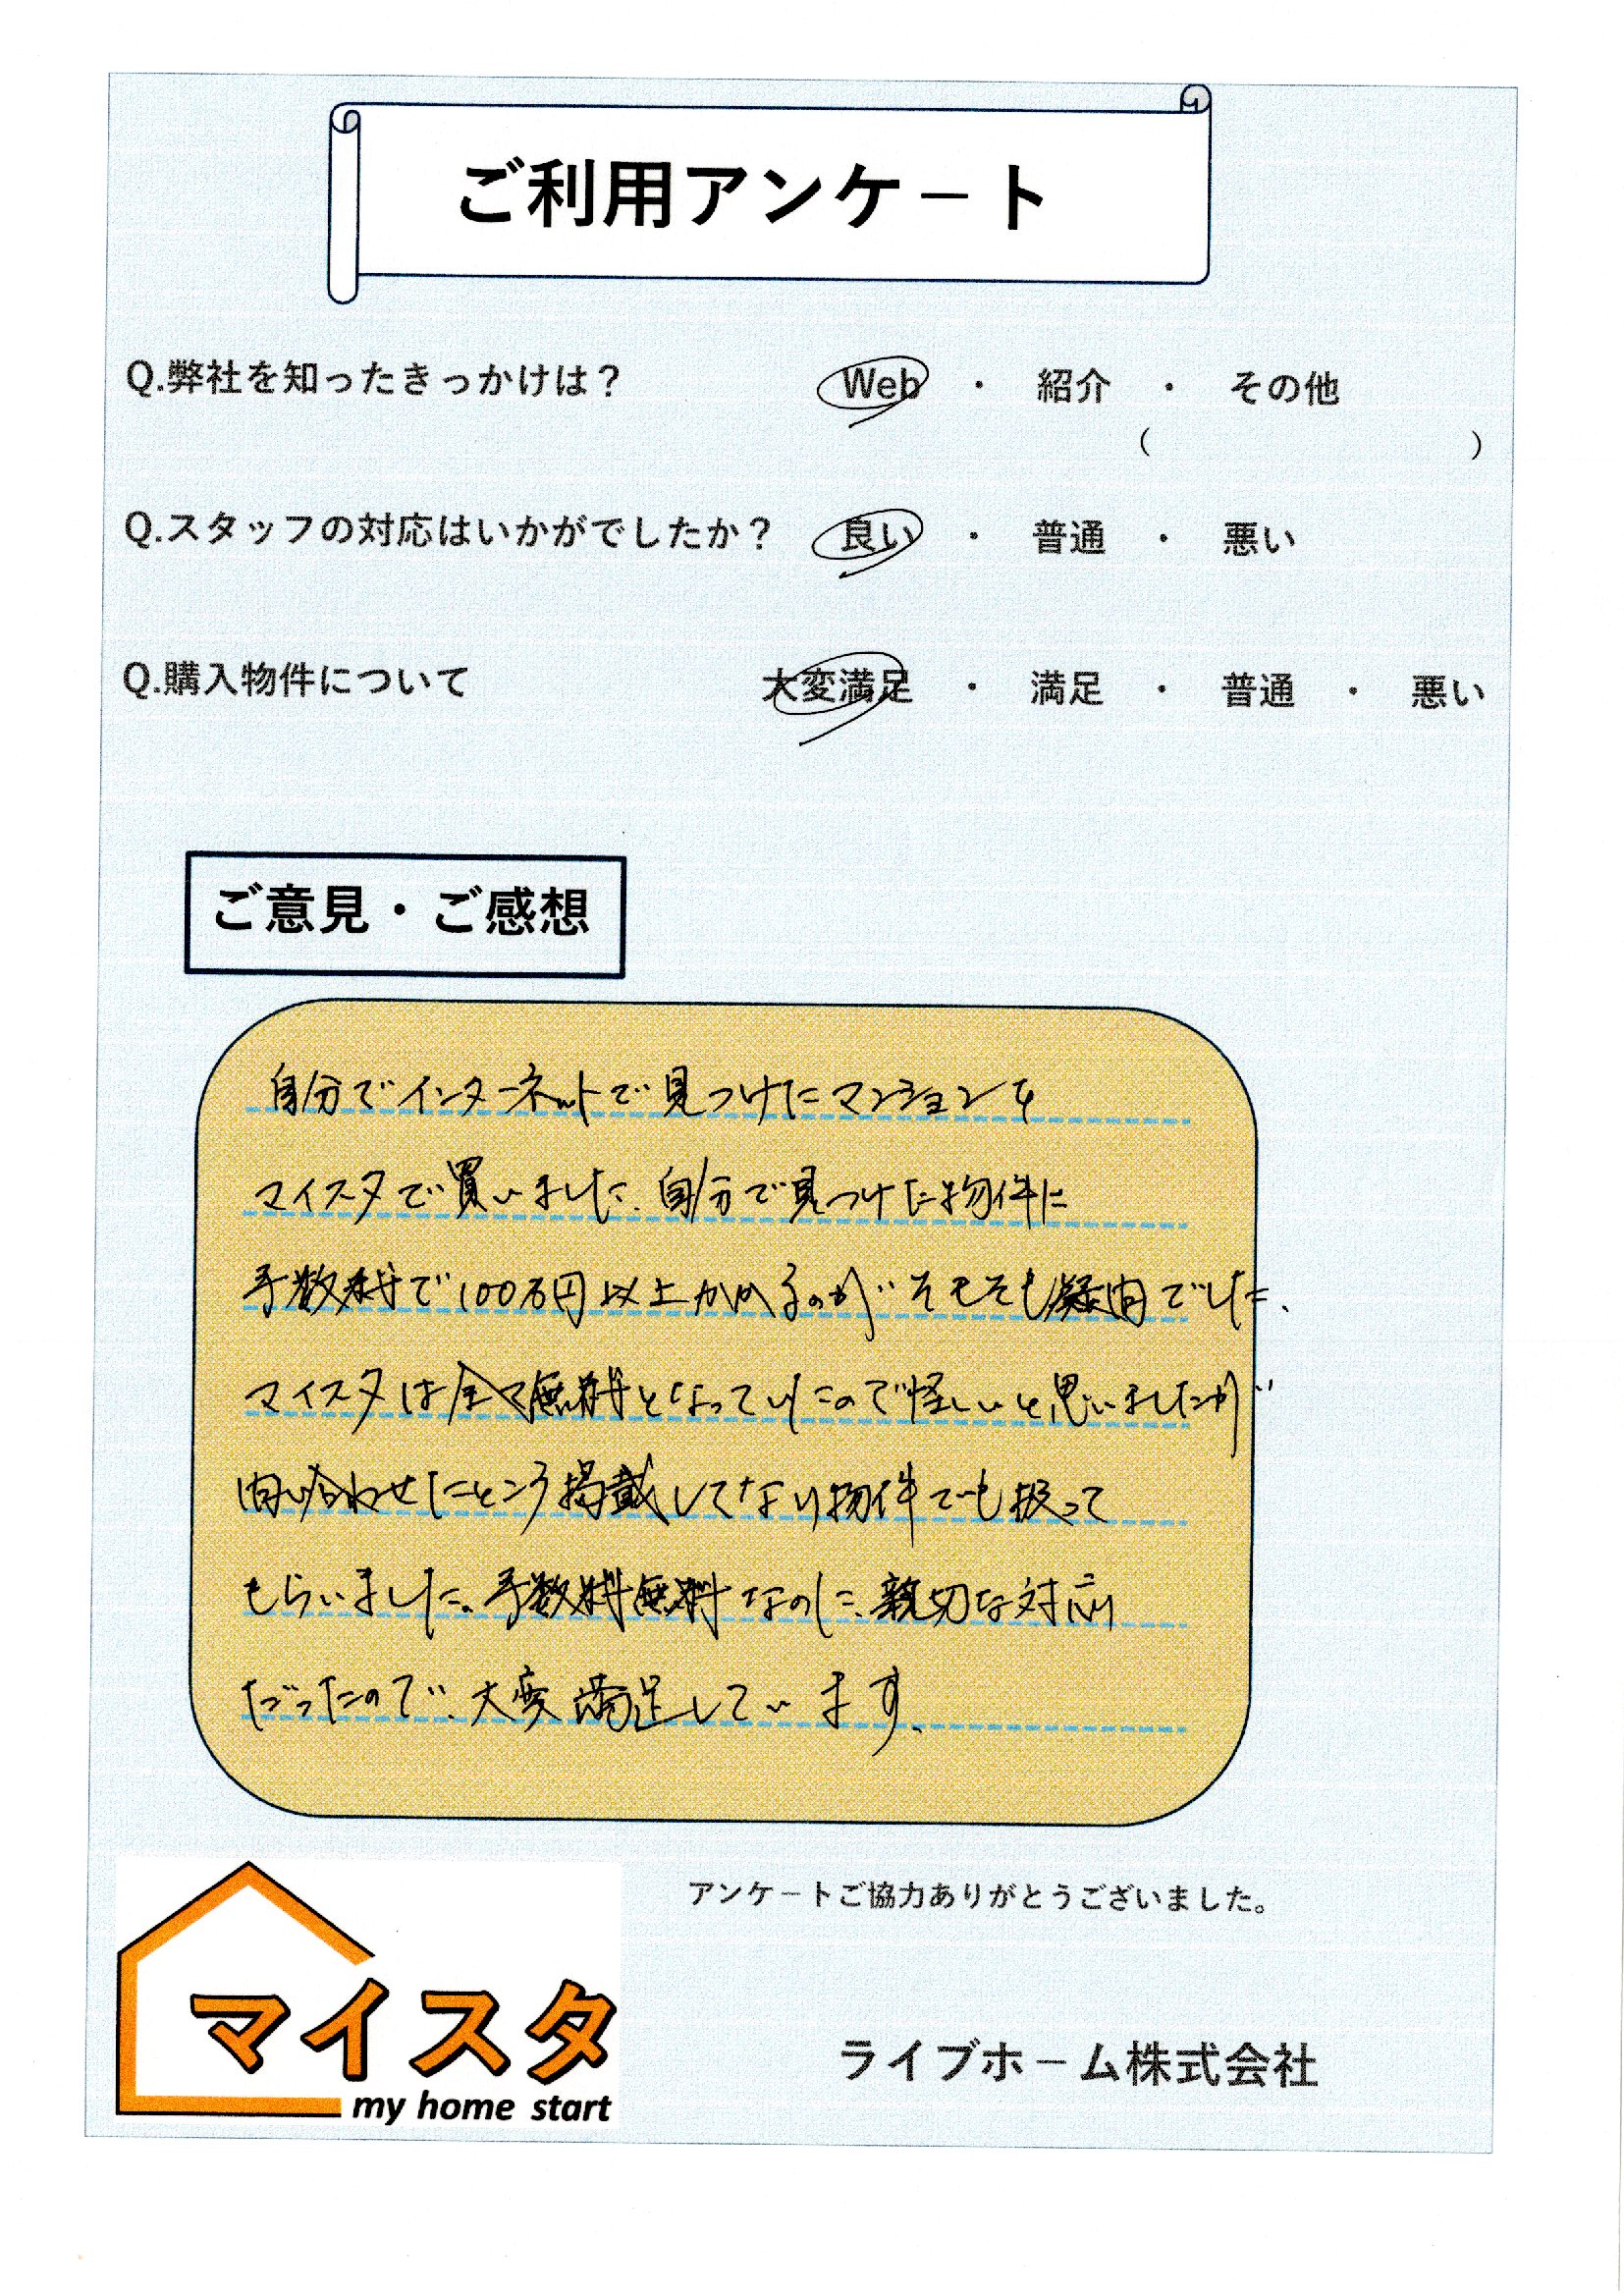 ご利用アンケート
Q.弊社を知ったきっかけは？ Web ・ 紹介 ・ その他
（ ）
Q.スタッフの対応はいかがでしたか？ 良い ・ 普通 ・ 悪い
Q.購入物件について 大変満足 ・ 満足 ・ 普通 ・ 悪い
ご意見・ご感想
自分でインターネットで見つけたマンションを
マイスタで買いました。自分で見つけた物件に
手数料で100万円以上かかるのがそもそも疑問でした、
マイスタは全て無料となっていたので怪しいと思いましたが
問い合わせたところ掲載してない物件でも扱って
もらいました。手数料無料なのに、親切な対応
だったので、大変満足しています、
アンケートご協力ありがとうございました。
マイスタ
my home start
ライブホーム株式会社